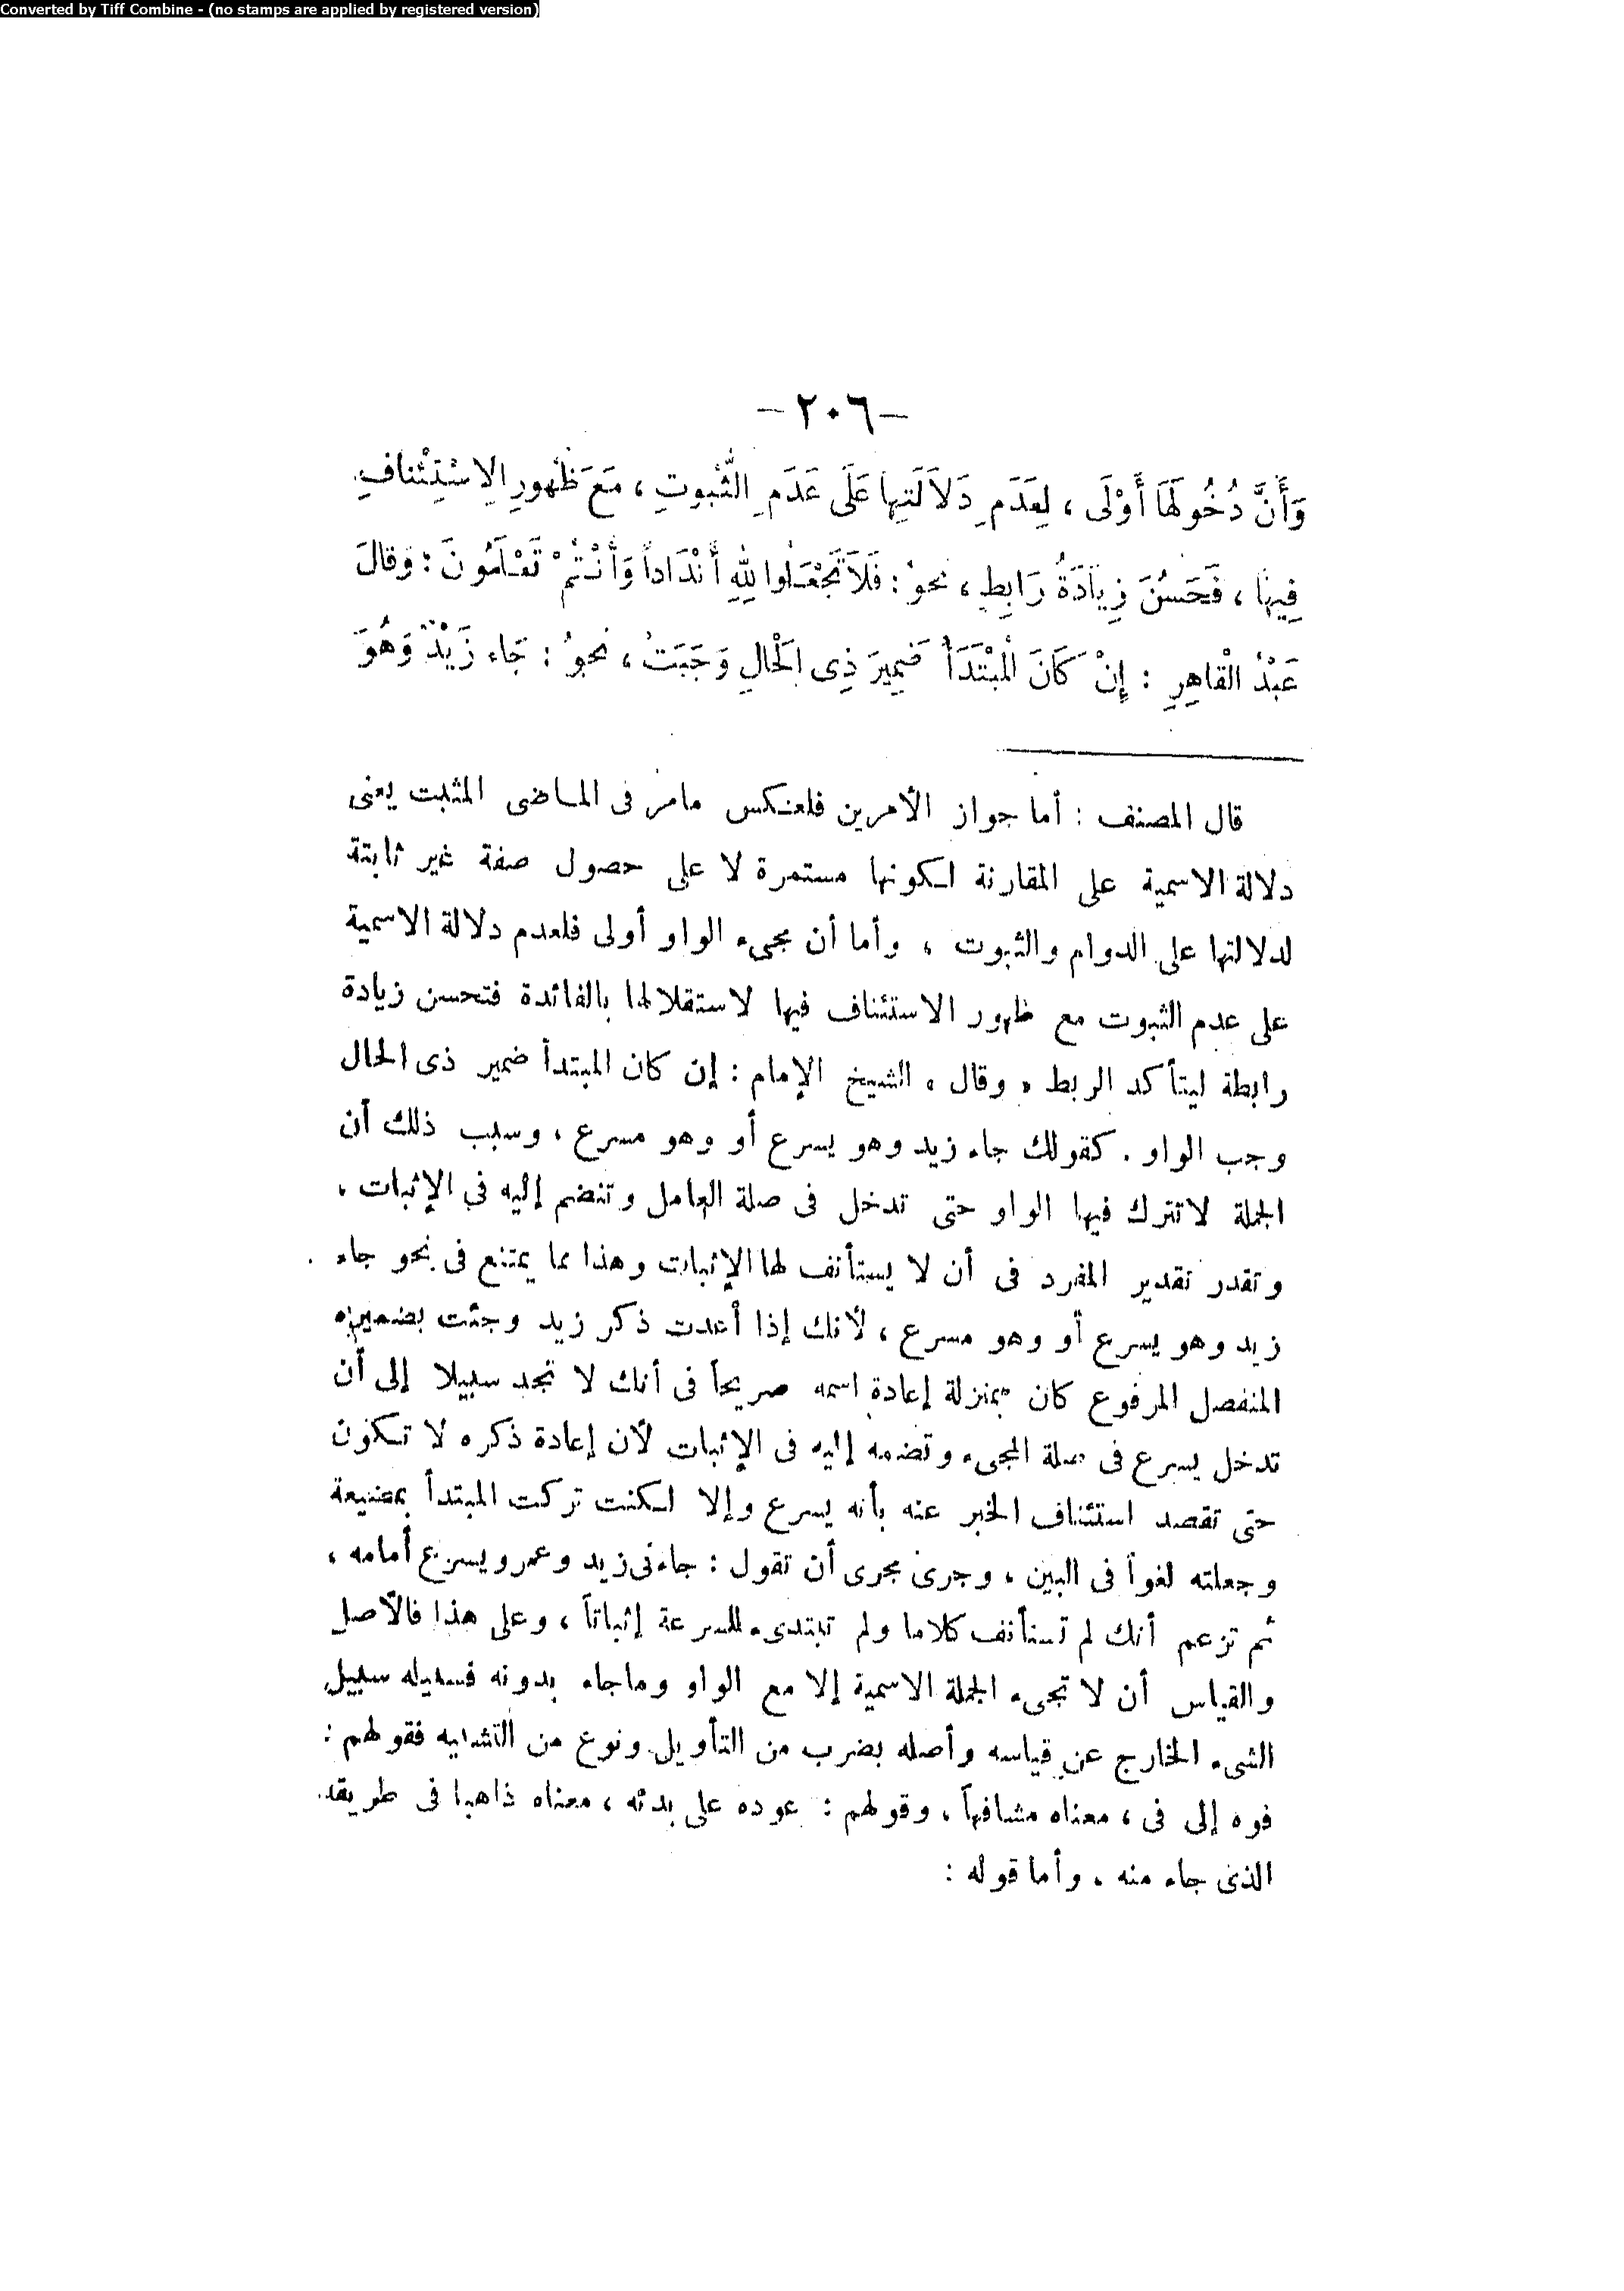 Converted by Tiff Combine - (no stamps are applied by registered version)
–٢٠٦–
وَأَنَّ دُخُولَهَا أَوْلَى ، لِعَدَمِ دَلَالَتِهَا عَلَى عَدَمِ الثُّبُوتِ ، مَعَ ظُهُورِ الِاسْتِئْنافِ
فِيهَا ، فَحَسُنَ زِيَادَةُ رَابِطٍ ، نحوُ : فَلَا تَجْعَلُوا لِلهِ أَنْدَاداً وَأَنْتُمْ تَعْلَمُونَ : وَقالَ
عَبْدُ الْقاهِرِ : إِنْ كَانَ الْمُبْتَدَأُ ضَمِيرَ ذِى الْحَالِ وَجَبَتْ ، نحوُ : جَاء زَيْدٌ وَهُوَ
قال المصنف : أما جواز الأمرين فلعكس مامر فى الماضى المثبت يعنى
دلالة الاسمية على المقارنة لكونها مستمرة لا على حصول صفة غير ثابتة
لدلالتها على الدوام والثبوت ، وأما أن مجىء الواو أولى فلعدم دلالة الاسمية
على عدم الثبوت مع ظهور الاستئناف فيها لاستقلالها بالفائدة فتحسن زيادة
رابطة ليتأكد الربط ، وقال ، الشيخ الإمام : إن كان المبتدأ ضمير ذى الحال
وجب الواو . كقولك جاء زيد وهو يسرع أو وهو مسرع ، وسبب ذلك أن
الجملة لا تترك فيها الواو حتى تدخل فى صلة العامل وتنضم إليه فى الإثبات ،
وتقدر تقدير المفرد فى أن لا يستأنف لها الإثبات وهذا مما يمتنع فى نحو جاء
زيد وهو يسرع أو وهو مسرع ، لأنك إذا أعدت ذكر زيد وجئت بضميره
المنفصل المرفوع كان بمنزلة إعادة اسمه صريحاً فى أنك لا تجد سبيلا إلى أن
تدخل يسرع فى صلة المجىء وتضمه إليه فى الإثبات لأن إعادة ذكره لا تكون
حتى تقصد استئناف الخبر عنه بأنه يسرع وإلا لكنت تركت المبتدأ بمضيعة
وجعلته لغواً فى البين ، وجرى مجرى أن تقول : جاءنى زيد وعمرو يسرع أمامه ،
ثم تزعم أنك لم تستأنف كلاما ولم تبتدىء للسرعة إثباتاً ، وعلى هذا فالأصل
والقياس أن لا تجىء الجملة الاسمية إلا مع الواو وماجاء بدونه فسبيله سبيل
الشىء الخارج عن قياسه وأصله بضرب من التأويل ونوع من التشبيه فقولهم :
فوه إلى فى ، معناه مشافهاً ، وقولهم : عوده على بدئه ، معناه ذاهبا فى طريقه
الذى جاء منه ، وأما قوله :